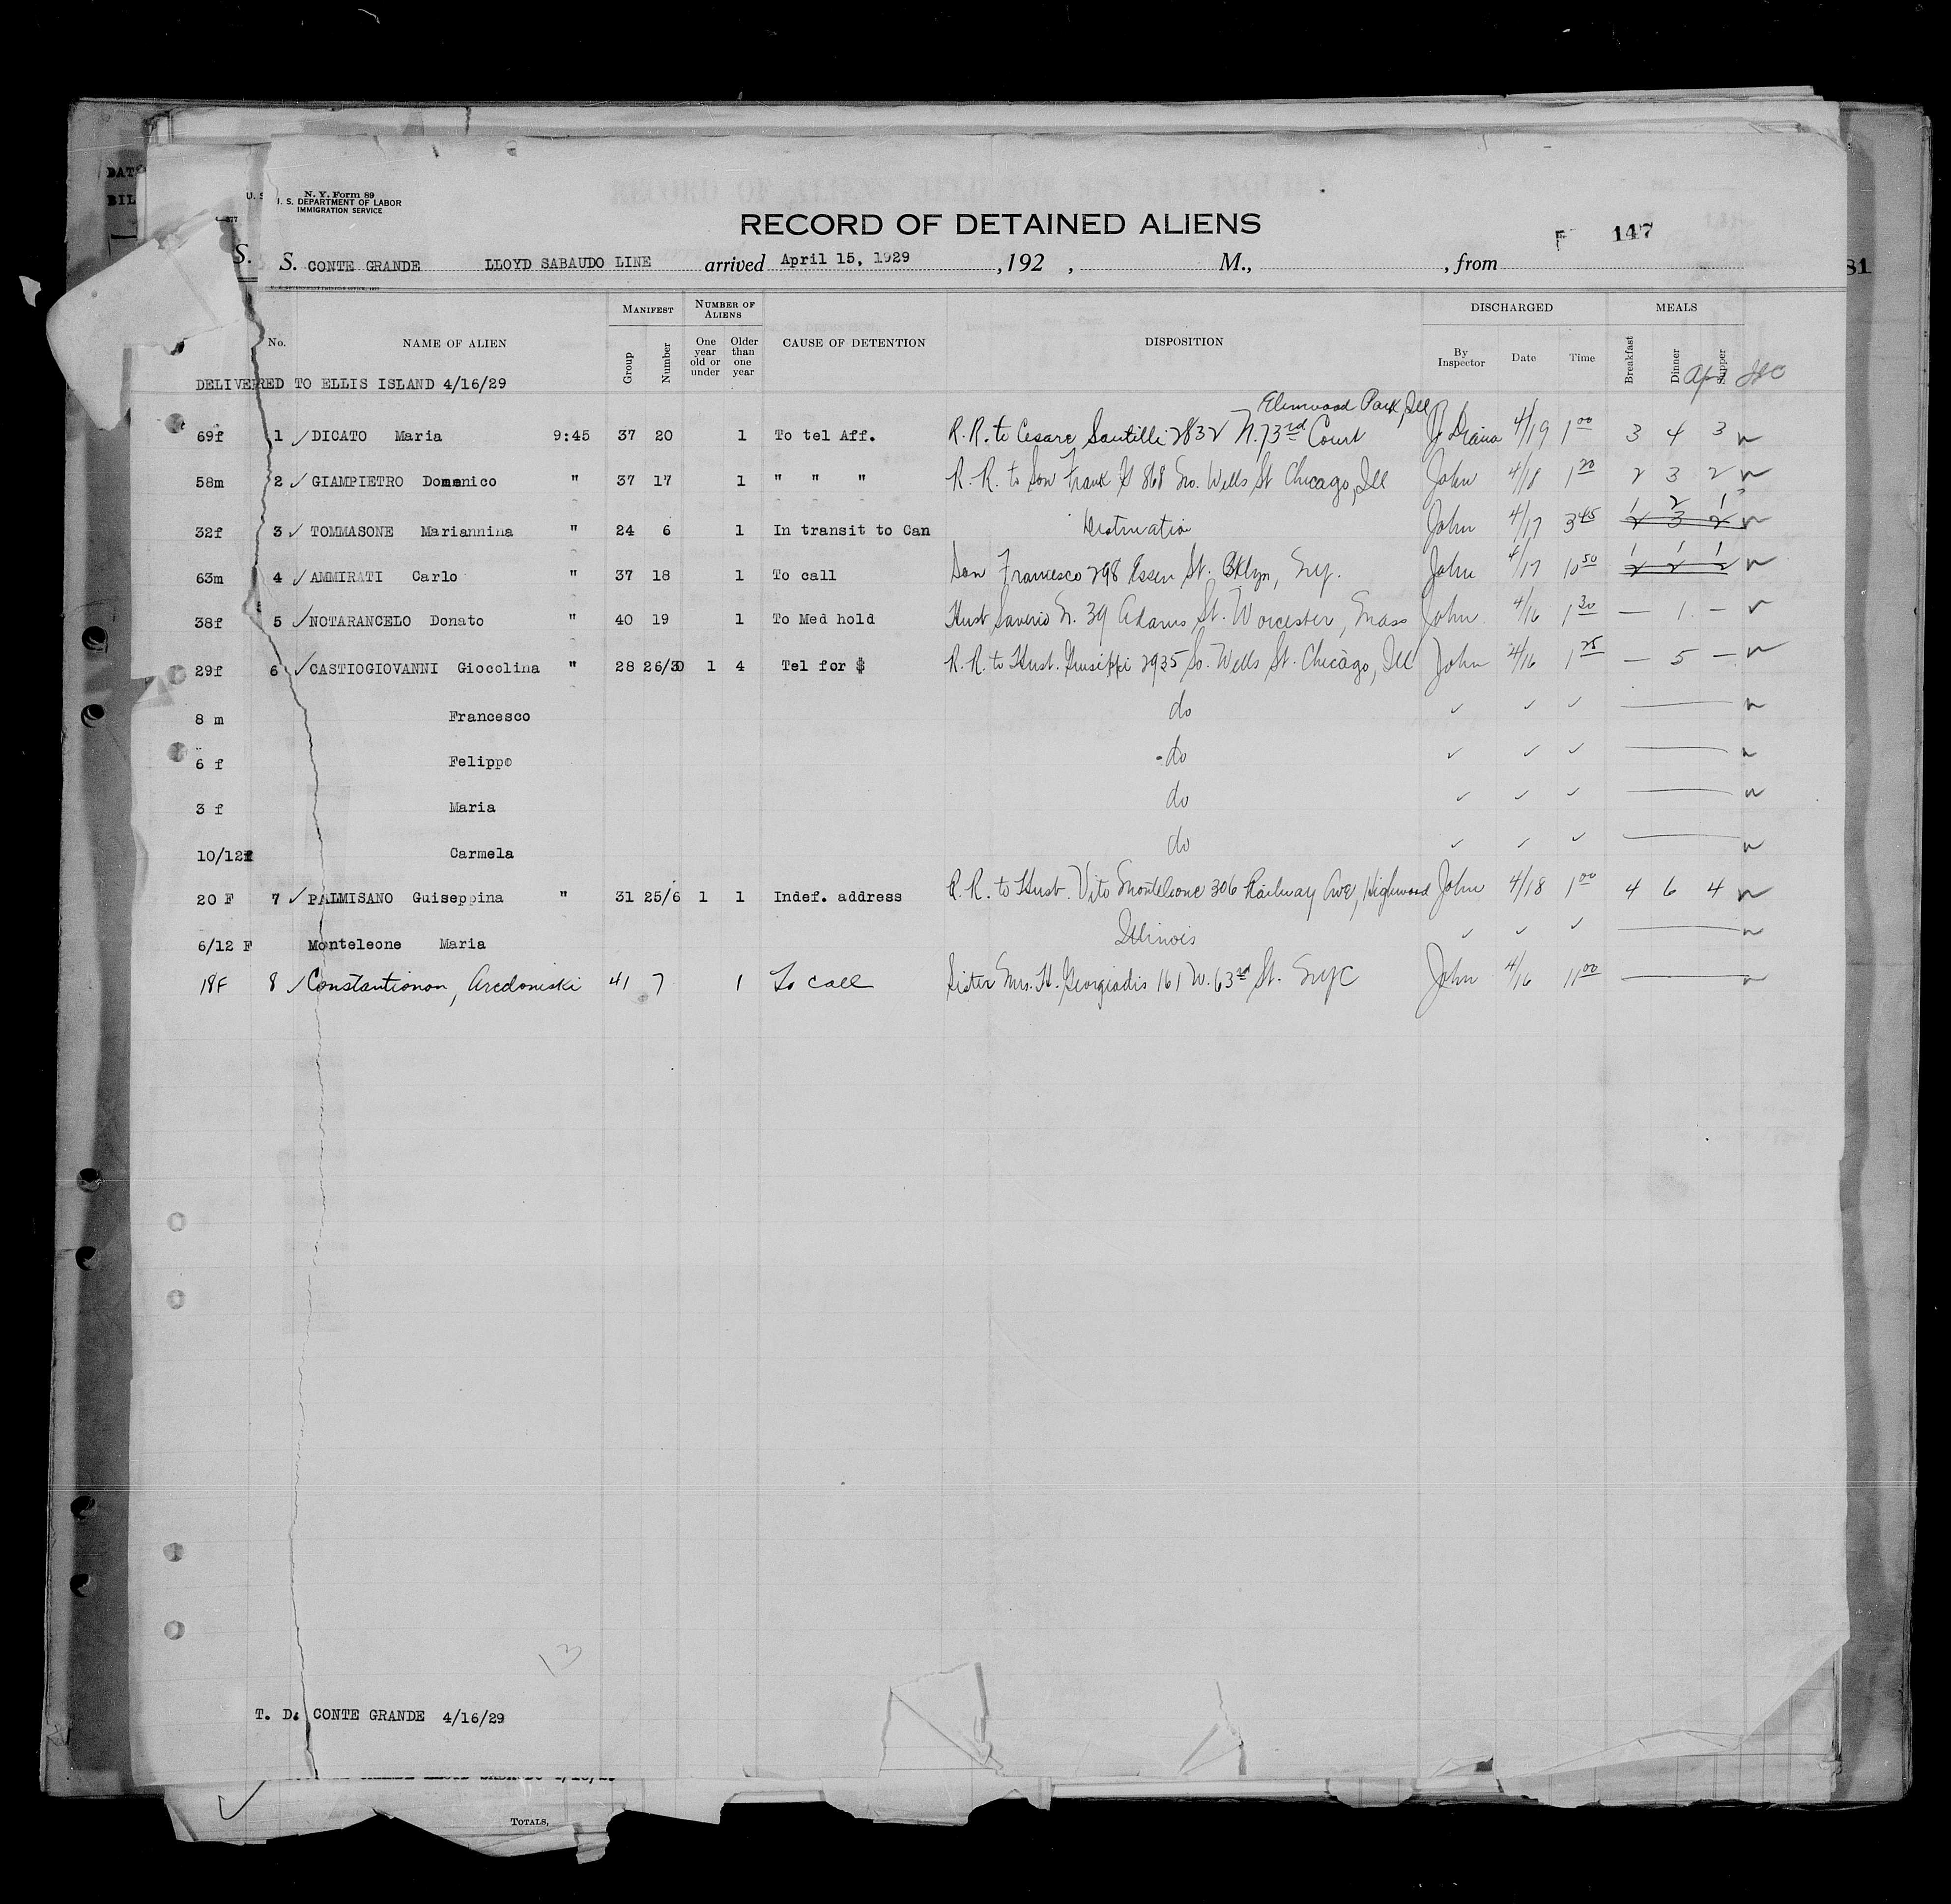 DAT
BIL
U. S
N. Y. Form 89
U. S. DEPARTMENT OF LABOR
IMMIGRATION SERVICE
RECORD OF DETAINED ALIENS
F 147
S. S. CONTE GRANDE LLOYD SABAUDO LINE arrived April 15, 1929 , 192 , M., , from
81
No. NAME OF ALIEN MANIFEST Group Number NUMBER OF ALIENS One year old or under Older than one year CAUSE OF DETENTION DISPOSITION DISCHARGED By Inspector Date Time MEALS Breakfast Dinner Supper
DELIVERED TO ELLIS ISLAND 4/16/29
Elmwood Park, Ill
69f 1 ✓ DICATO Maria 9:45 37 20 1 To tel Aff. R.R. to Cesare Santilli 2832 N. 73rd Court 4/19 1 00 3 4 3
58m 2 ✓ GIAMPIETRO Domenico " 37 17 1 " " " R.R. to Son Frank 868 So. Wells St Chicago, Ill John 4/18 1 20 2 3 2
1 2 1
32f 3 ✓ TOMMASONE Mariannina " 24 6 1 In transit to Can Destination John 4/17 3 45 2 3 2
1 1 1
63m 4 ✓ AMMIRATI Carlo " 37 18 1 To call Son Francesco 298 Essen St. Bklyn, N.y. John 4/17 10 50 2 2 2
38f 5 ✓ NOTARANCELO Donato " 40 19 1 To Med hold Husb Saverio N. 39 Adams St. Worcester, Mass John 4/16 1 30 — 1 —
29f 6 ✓ CASTIOGIOVANNI Giocolina " 28 26/30 1 4 Tel for $ R.R. to Husb. Giuseppi 2935 So. Wells St. Chicago, Ill John 4/16 1 25 — 5 —
8 m Francesco do ✓ ✓ ✓
6 f Felippo do ✓ ✓ ✓
3 f Maria do ✓ ✓ ✓
10/12f Carmela do ✓ ✓ ✓
20 F 7 ✓ PALMISANO Guiseppina " 31 25/6 1 1 Indef. address R.R. to Husb. Vito Monteleone 306 Railway Ave, Highwood John 4/18 1 00 4 6 4
6/12 F Monteleone Maria Illinois ✓ ✓ ✓
18F 8 ✓ Constantionon, Aredoniski 41 7 1 To call Sister Mrs. H. Georgiadis 161 W. 63rd St. NYC John 4/16 11 00
13
T. D. CONTE GRANDE 4/16/29
TOTALS,